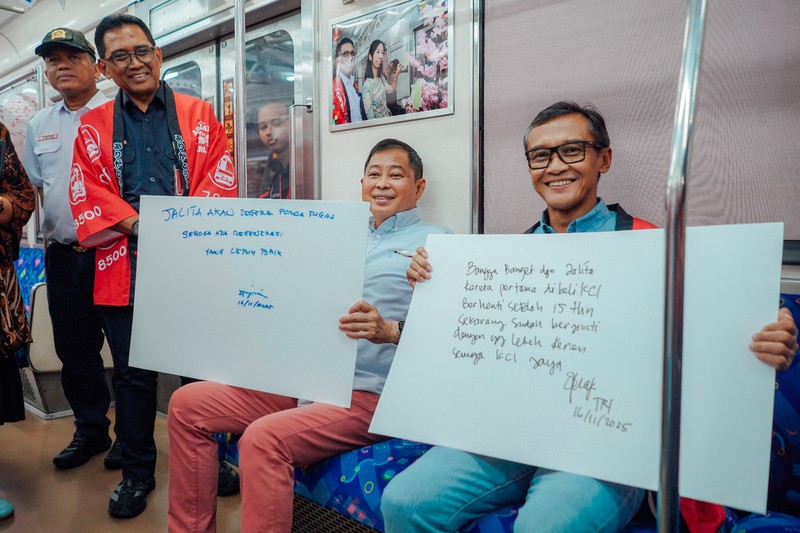 8500
8500
JALITA AKAN SEGERA PURNA TUGAS
SEMOGA ADA REGENERASI
YANG LEBIH BAIK
16/11/2025
Bangga Banget dgn Jalita
kereta pertama di beli KCI
Berhenti setelah 15 thn
sekarang sudah berganti
dengan yg lebih keren
semoga KCI Jaya
TRI
16/11/2025